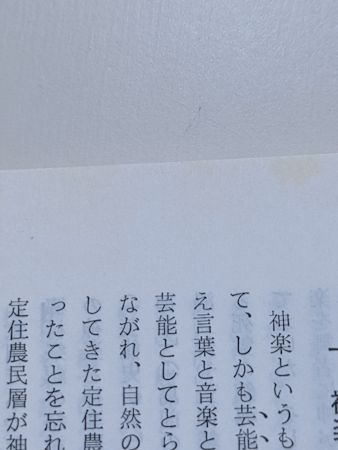 一　神楽
神楽というも
て、しかも芸能
え言葉と音楽と
芸能としてとら
ながれ、自然の
してきた定住農
ったことを忘れ
定住農民層が神